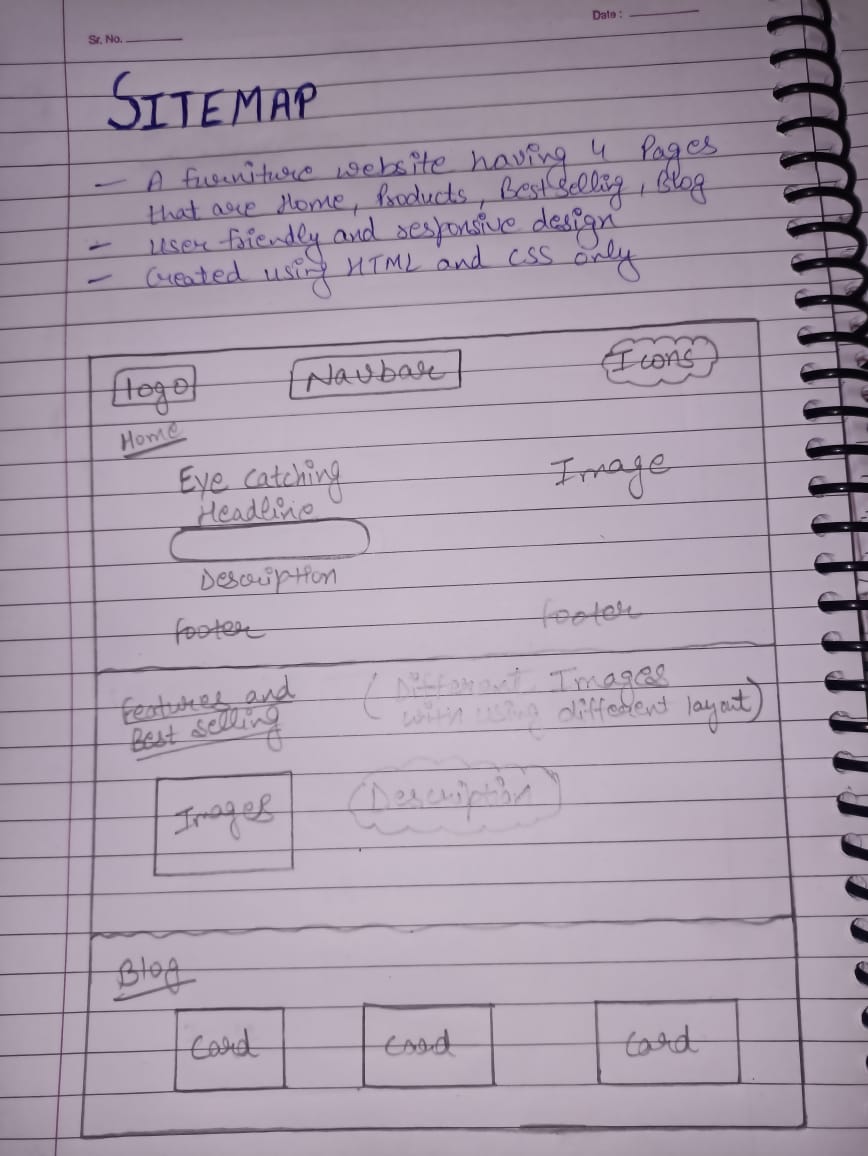 Sr. No.
Date :
SITEMAP
- A furniture website having 4 Pages
that are Home, Products, Best Selling, Blog
- User friendly and responsive design
- Created using HTML and CSS only
logo
Navbar
Icons
Home
Eye Catching
Headline
Image
Description
footer
footer
Features and
Best selling
(Different Images
with using different layout)
Images
Description
Blog
Card
Card
Card